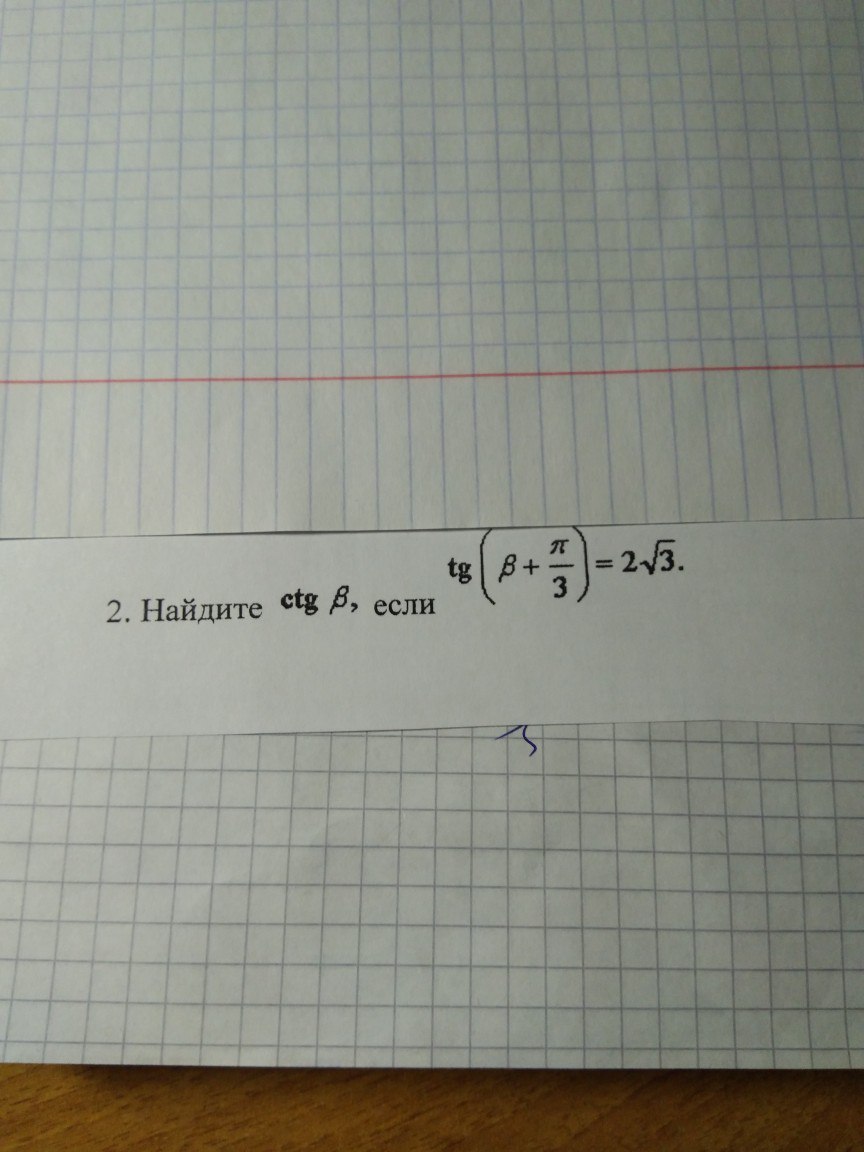 2. Найдите ctg β, если tg(β + π/3) = 2√3.